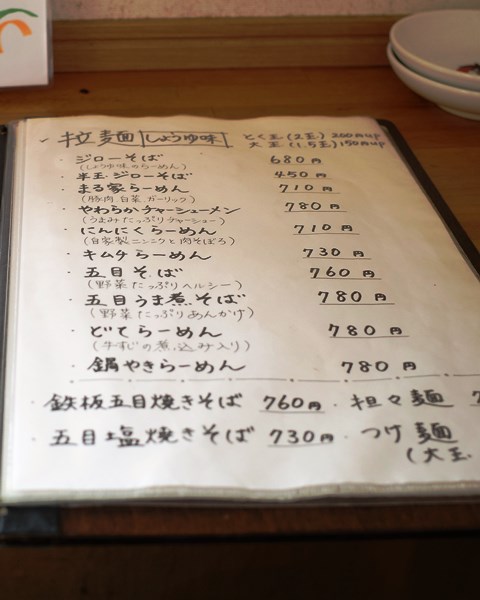 拉麺 しょうゆ味 とく玉(2玉)200円up
大玉(1.5玉)150円up
・ジローそば 680円
(しょうゆ味のらーめん)
・半玉ジローそば 450円
・まる家らーめん 710円
(豚肉 白菜 ガーリック)
・やわらかチャーシューメン 780円
(うまみたっぷりチャーシュー)
・にんにくらーめん 710円
(自家製ニンニクと肉そぼろ)
・キムチらーめん 730円
・五目そば 760円
(野菜たっぷりヘルシー)
・五目うま煮そば 780円
(野菜たっぷりあんかけ)
・どてらーめん 780円
(牛すじの煮込み入り)
・鍋やきらーめん 780円
・鉄板五目焼きそば 760円 ・担々麺 7
・五目塩焼きそば 730円 ・つけ麺
(大玉・